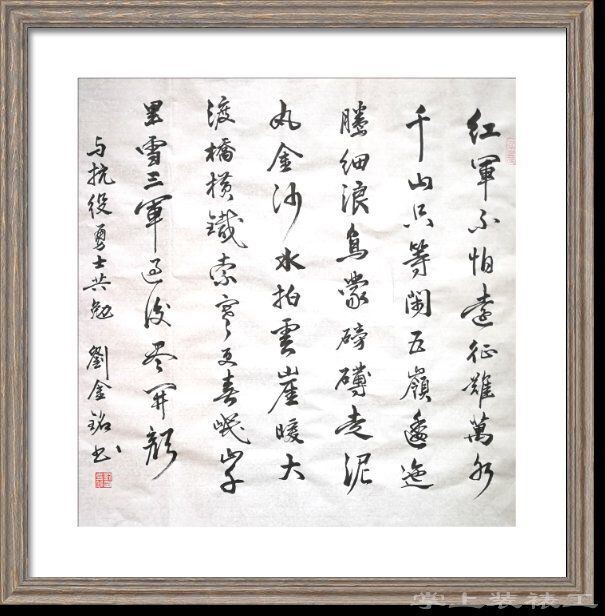 红軍不怕遠征難萬水
千山只等閑五嶺逶迤
騰细浪烏蒙磅礴走泥
丸金沙水拍雲崖暖大
渡橋横鐵索寒更喜岷山千
里雪三軍過後尽開顔
与抗役勇士共勉 劉金銘书
掌上装裱工